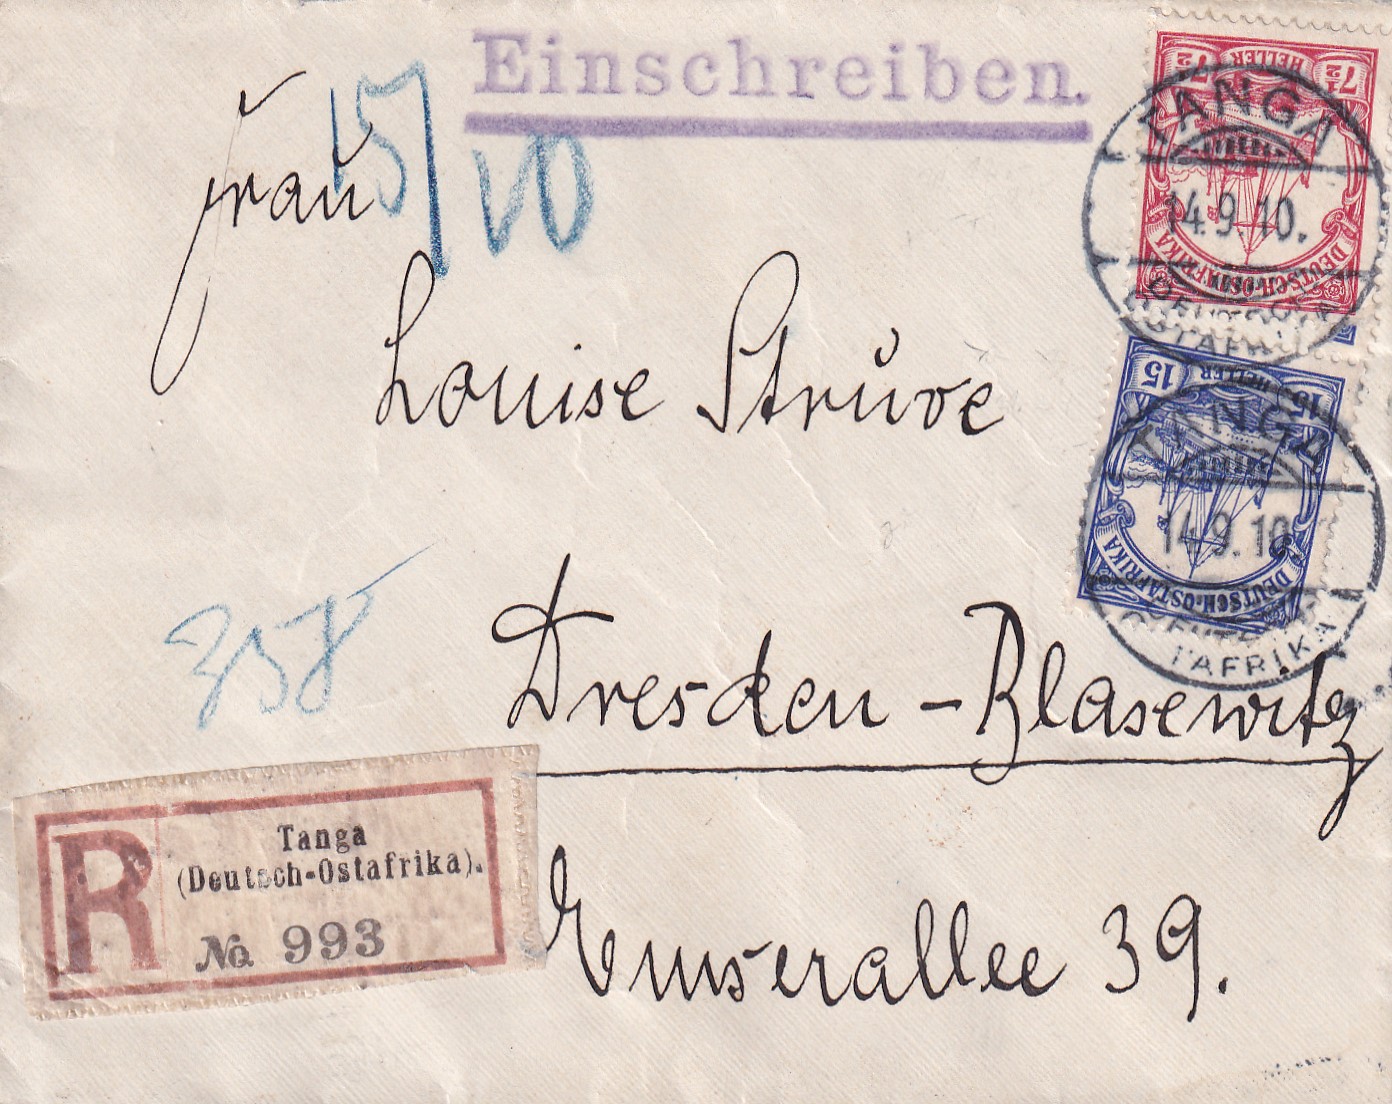 Einschreiben.
15/
10
Frau
Louise Strŭve
Dresden-Blasewitz
Emserallee 39.
358
R
Tanga
(Deutsch-Ostafrika).
No. 993
7½ 7½
HELLER
DEUTSCH-OSTAFRIKA
TANGA
14.9.10.
15 15
HELLER
DEUTSCH-OSTAFRIKA
TANGA
14.9.10.
TAFRIKA